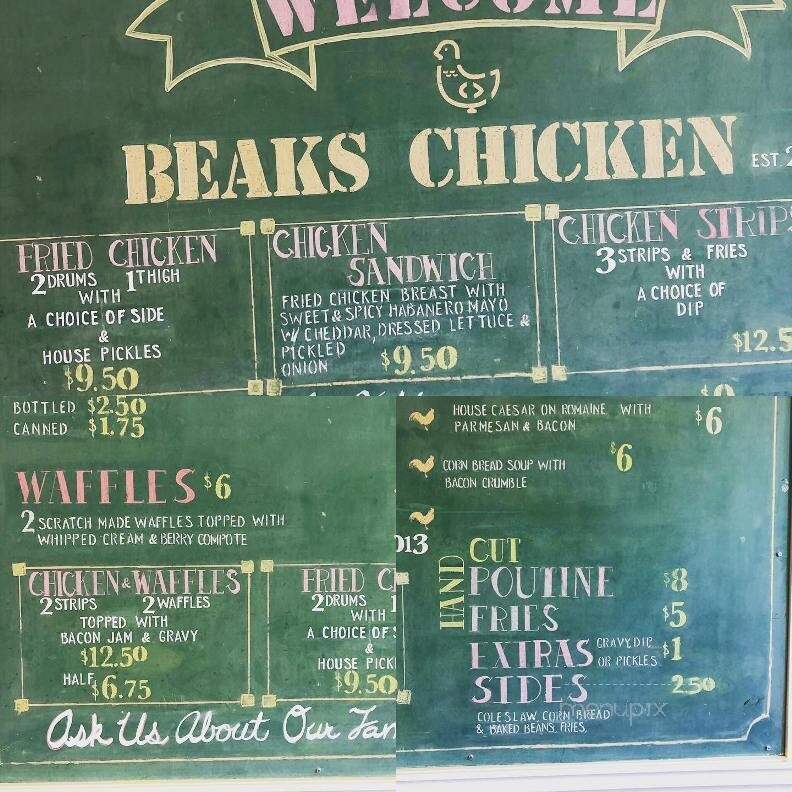 WELCOME
BEAKS CHICKEN
EST.
FRIED CHICKEN
2 DRUMS 1 THIGH
WITH
A CHOICE OF SIDE
&
HOUSE PICKLES
$9.50
CHICKEN
SANDWICH
FRIED CHICKEN BREAST WITH
SWEET & SPICY HABANERO MAYO
W/ CHEDDAR, DRESSED LETTUCE &
PICKLED
ONION $9.50
CHICKEN STRIPS
3 STRIPS & FRIES
WITH
A CHOICE OF
DIP
$12.5
BOTTLED $2.50
CANNED $1.75
WAFFLES $6
2 SCRATCH MADE WAFFLES TOPPED WITH
WHIPPED CREAM & BERRY COMPOTE
CHICKEN & WAFFLES
2 STRIPS 2 WAFFLES
TOPPED WITH
BACON JAM & GRAVY
$12.50
HALF $6.75
FRIED C
2 DRUMS 1
WITH
A CHOICE OF S
&
HOUSE PICK
$9.50
Ask Us About Our Fam
HOUSE CAESAR ON ROMAINE WITH
PARMESAN & BACON $6
CORN BREAD SOUP WITH
BACON CRUMBLE $6
013
HAND CUT
POUTINE $8
FRIES $5
EXTRAS GRAVY, DIP
OR PICKLES $1
SIDES 2.50
menupix
COLESLAW, CORN BREAD
& BAKED BEANS, FRIES